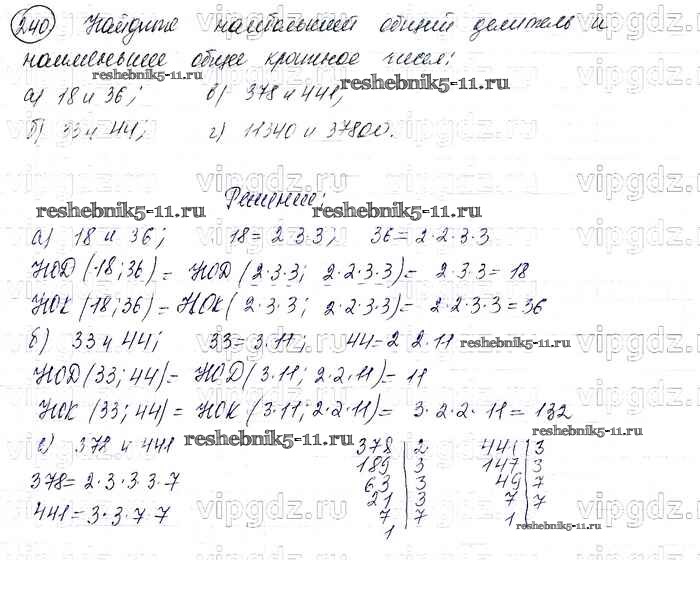 240 Найдите наибольший общий делитель и
наименьшее общее кратное чисел:
reshebnik5-11.ru
reshebnik5-11.ru
а) 18 и 36; в) 378 и 441;
б) 33 и 44; г) 11340 и 37800.
vipgdz.ru vipgdz.ru vipgdz.ru
Решение:
reshebnik5-11.ru
reshebnik5-11.ru
а) 18 и 36; 18 = 2·3·3; 36 = 2·2·3·3
НОД (18; 36) = НОД (2·3·3; 2·2·3·3) = 2·3·3 = 18
НОК (18; 36) = НОК (2·3·3; 2·2·3·3) = 2·2·3·3 = 36
б) 33 и 44; 33 = 3·11; 44 = 2 2·11
reshebnik5-11.ru
НОД (33; 44) = НОД (3·11; 2·2·11) = 11
НОК (33; 44) = НОК (3·11; 2·2·11) = 3·2·2·11 = 132
reshebnik5-11.ru
в) 378 и 441
378 = 2·3·3·3·7
441 = 3·3·7·7
378 | 2
189 | 3
63 | 3
21 | 3
7 | 7
1
441 | 3
147 | 3
49 | 7
7 | 7
1
reshebnik5-11.ru
vipgdz.ru vipgdz.ru vipgdz.ru